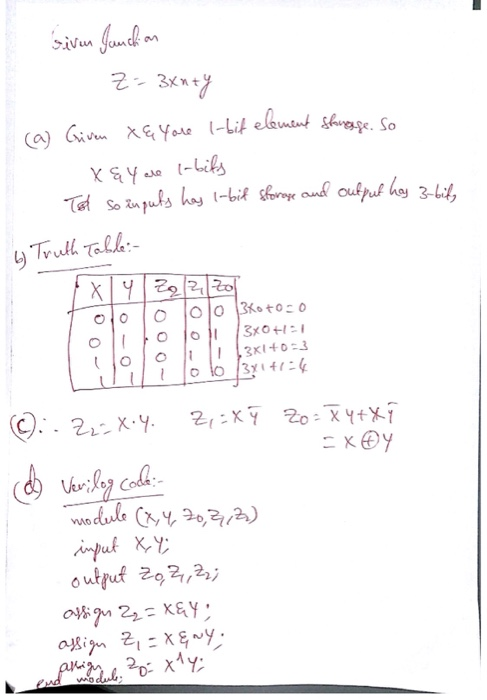 Given function
Z = 3xx+y
(a) Given X & Y are 1-bit element storage. So
X & Y are 1-bits
So inputs has 1-bit storage and output has 3-bits
b) Truth Table:-
X Y Z2 Z1 Z0
0 0 0 0 0 3x0+0=0
0 1 0 0 1 3x0+1=1
1 0 0 1 1 3x1+0=3
1 1 1 0 0 3x1+1=4
(c) ∴ Z2 = X·Y. Z1 = XȲ Z0 = X̄Y+X·Ȳ
= X⊕Y
(d) Verilog code:-
module (X,Y,Z0,Z1,Z2)
input X,Y;
output Z0,Z1,Z2;
assign Z2 = X&Y;
assign Z1 = X&~Y;
assign Z0 = X^Y;
end module;